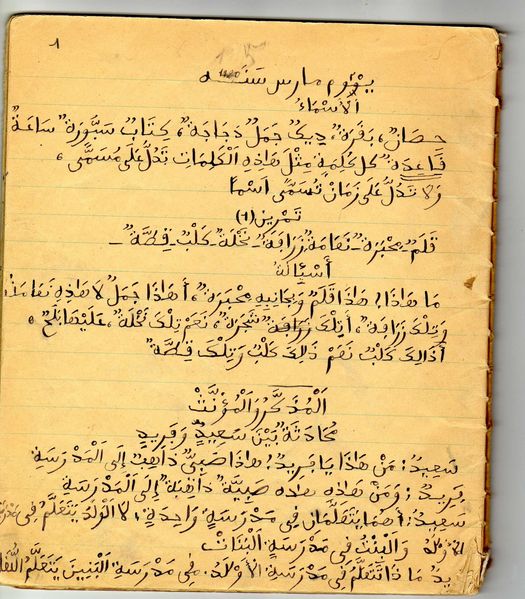 ١
يَوْم مارس سَنَـــــة
الْأَسْمَاءُ
حِصَانٌ، بَقَرَةٌ، دِيكٌ جَمَلٌ دَجَاجَةٌ، كِتَابٌ سَبُّورَةٌ سَاعَةٌ
قَاعِدَةٌ كُلُّ كَلِمَةٍ مِثْلَ هَاذِهِ الْكَلِمَاتِ تَدُلُّ عَلَى مُسَمًّى،
وَلَا تَدُلُّ عَلَى زَمَانٍ تُسَمَّى اسْمًا
تَمْرِين (١)
قَلَمٌ ـ مِحْبَرَةٌ ـ نَعَامَةٌ زَرَافَةٌ ـ نَخْلَةٌ ـ كَلْبٌ ـ قِطَّةٌ ـ
أَسْئِلَةٌ
مَا هَاذَا؟ هَاذَا قَلَمٌ وَبِجَانِبِهِ مِحْبَرَةٌ، أَهَاذَا جَمَلٌ لَا هَاذِهِ نَعَامَةٌ
وَتِلْكَ زَرَافَةٌ، أَتِلْكَ شَجَرَةٌ، نَعَمْ تِلْكَ نَخْلَةٌ، عَلَيْهَا بَلَحٌ،
أَذَالِكَ كَلْبٌ نَعَمْ ذَالِكَ كَلْبٌ وَتِلْكَ قِطَّةٌ
الْمُذَكَّرُ وَالْمُؤَنَّثُ
مُحَادَثَةٌ بَيْنَ سَعِيدٍ وَفَرِيدٍ
سَعِيدٌ: مَنْ هَاذَا يَا فَرِيدُ؛ هَاذَا صَبِيٌّ ذَاهِبٌ إِلَى الْمَدْرَسَةِ
فَرِيدٌ: وَمَنْ هَاذِهِ هَاذِهِ صَبِيَّةٌ ذَاهِبَةٌ إِلَى الْمَدْرَسَةِ
سَعِيدٌ: أَهُمَا يَتَعَلَّمَانِ فِي مَدْرَسَةٍ وَاحِدَةٍ، لَا الْوَلَدُ يَتَعَلَّمُ فِي
الْأَوْلَادِ وَالْبِنْتُ فِي مَدْرَسَةِ الْبَنَاتِ
مَاذَا تَتَعَلَّمُ فِي مَدْرَسَةِ الْأَوْلَادِ. فِي مَدْرَسَةِ الْبَنِينَ يَتَعَلَّمُ